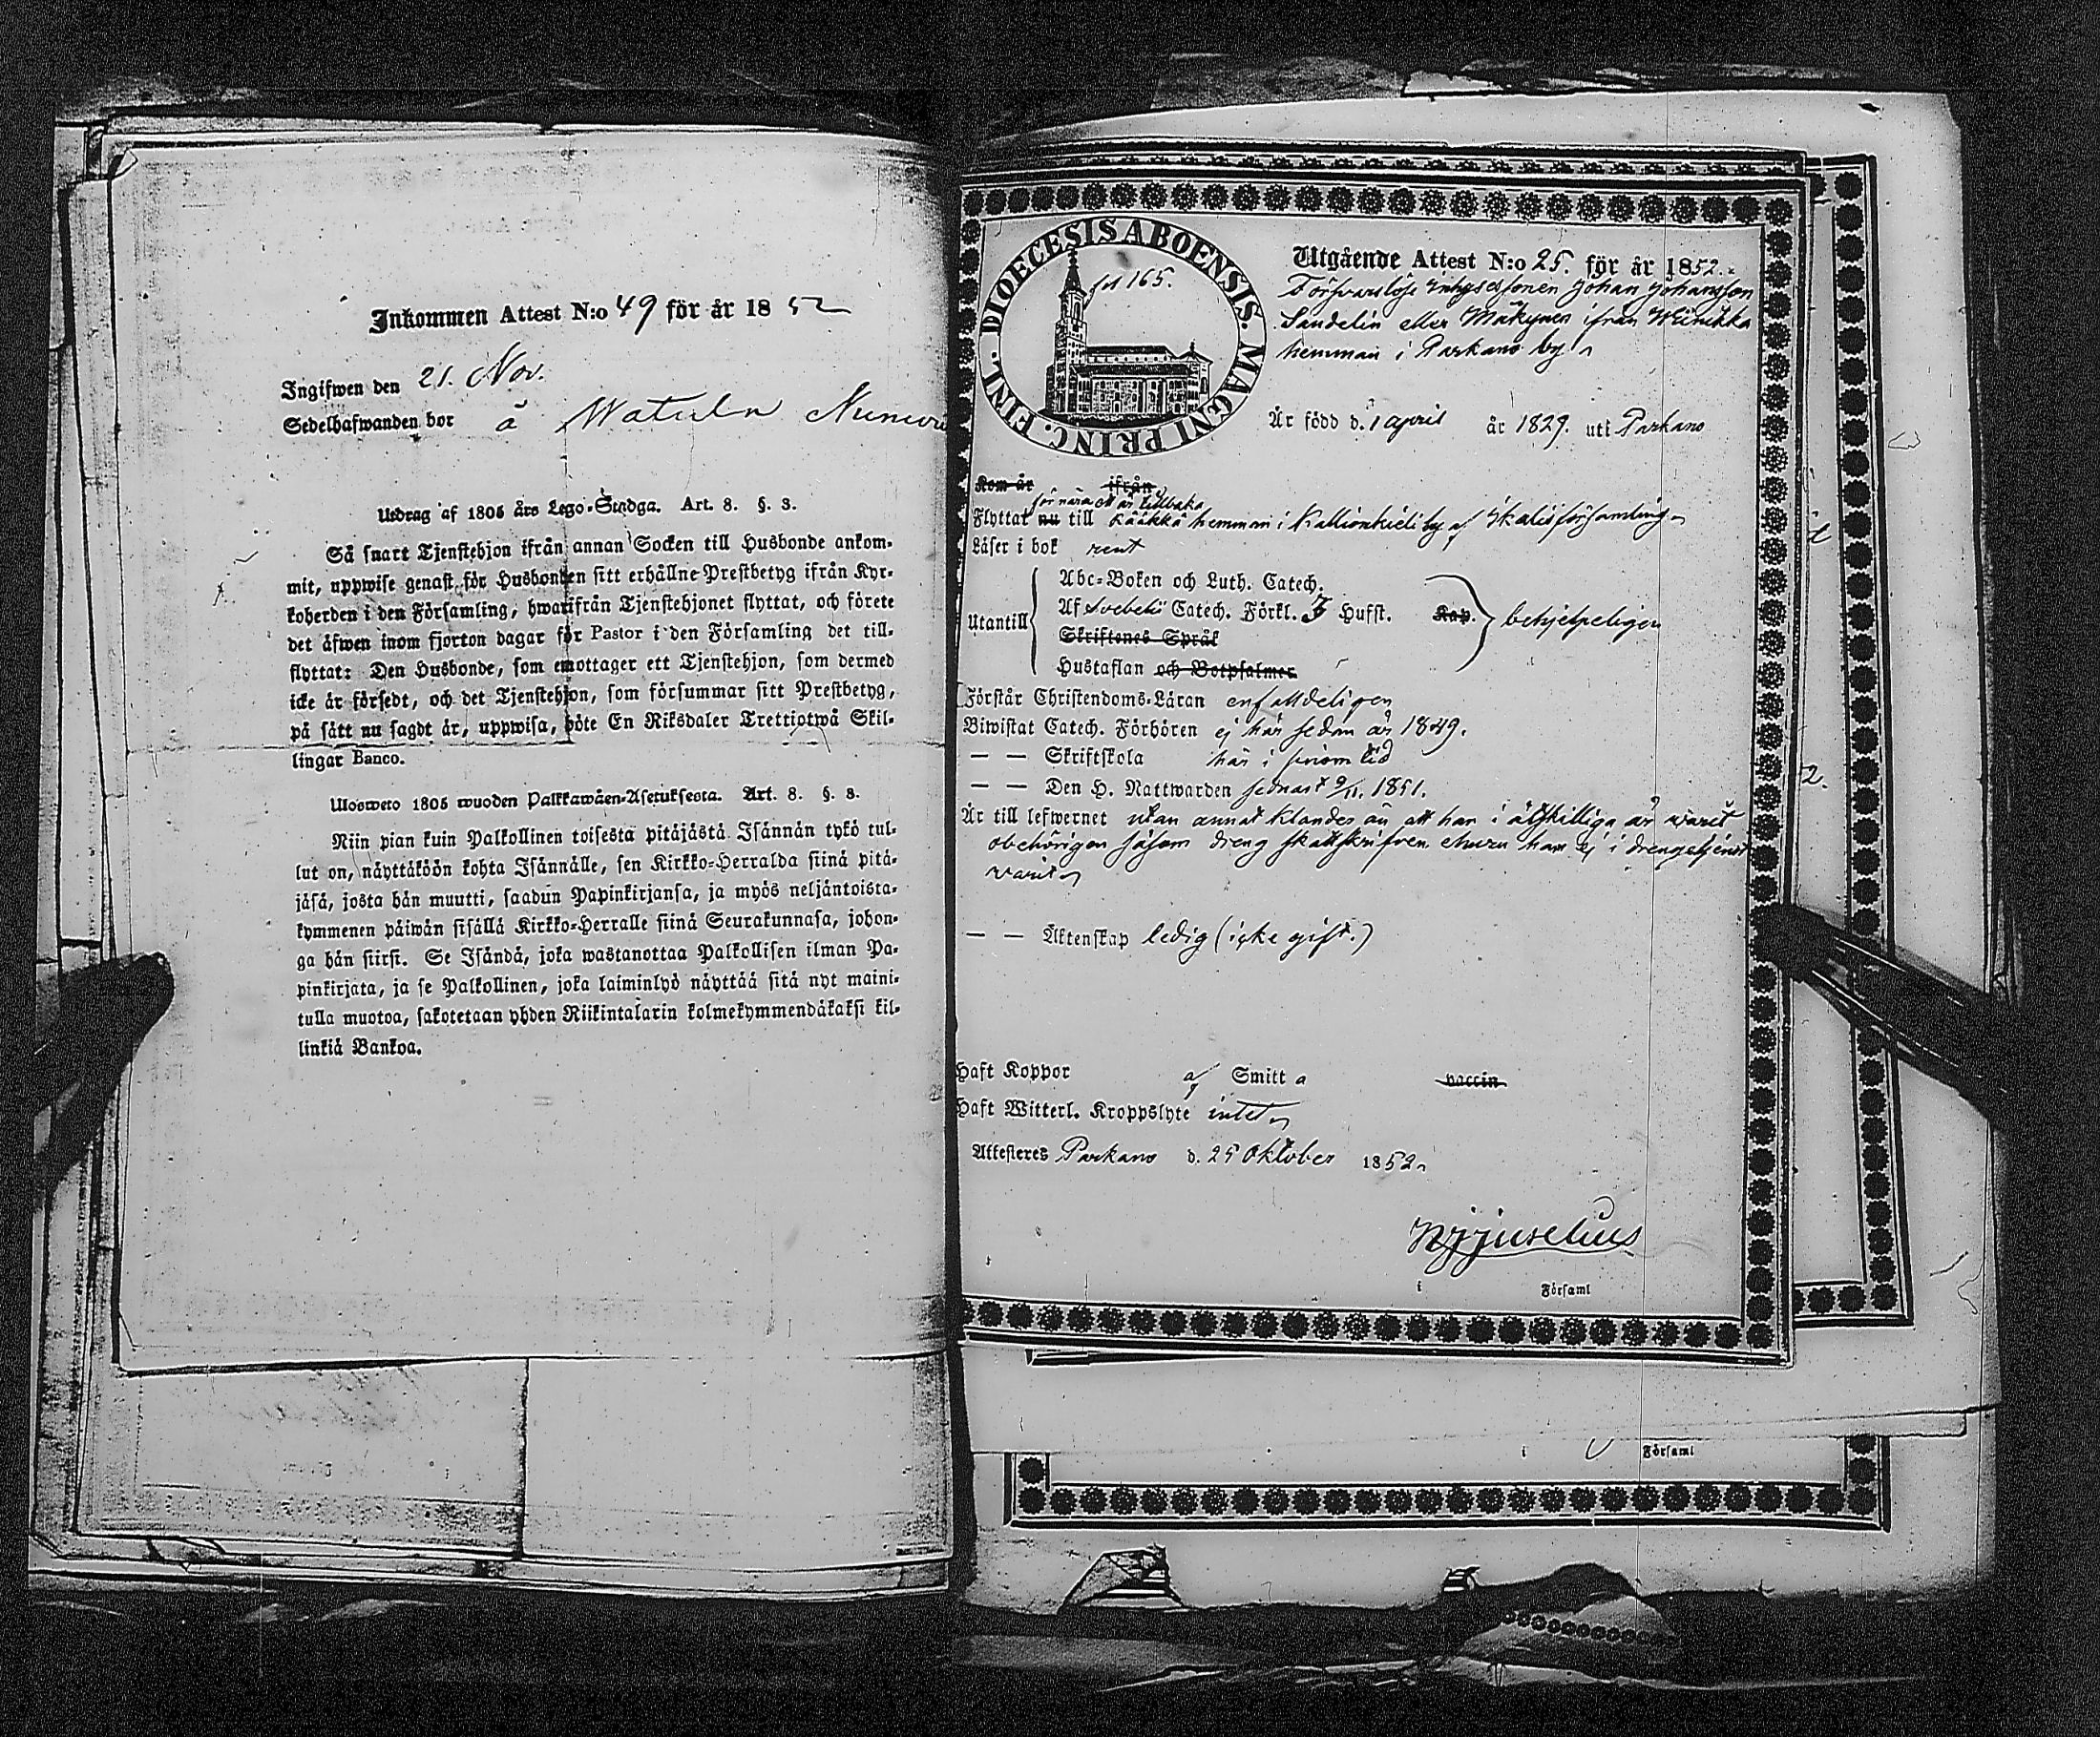 Inkommen Attest N:o 49 för år 1852
Ingifwen den 21. Nov.
Sedelhafwanden bor å Watula
Utdrag af 1805 års Lego-Stadga. Art. 8. §. 3.
Så snart Tjenstehjon ifrån annan Socken till Husbonde ankom-
mit, uppwise genast för Husbonden sitt erhållne Prestbetyg ifrån Kyr-
koherden i den Församling, hwarifrån Tjenstehjonet flyttat, och förete
det äfwen inom fjorton dagar för Pastor i den Församling det till-
flyttat: Den Husbonde, som emottager ett Tjenstehjon, som dermed
icke är försedt, och det Tjenstehjon, som försummar sitt Prestbetyg,
på sätt nu sagdt är, uppwisa, böte En Riksdaler Trettiotwå Skil-
lingar Banco.
Ulosweto 1805 wuoden Palkkawäen-Asetuksesta. Art. 8. §. 3.
Niin pian kuin Palkollinen toisesta pitäjästä Isännän tykö tul-
lut on, näyttäköön kohta Isännälle, sen Kirkko-Herralda siinä pitä-
jäsä, josta hän muutti, saadun Papinkirjansa, ja myös neljäntoista-
kymmenen päiwän sisällä Kirkko-Herralle siinä Seurakunnasa, johon-
ga hän siirsi. Se Isändä, joka wastanottaa Palkollisen ilman Pa-
pinkirjata, ja se Palkollinen, joka laiminlyö näyttää sitä nyt maini-
tulla muotoa, sakotetaan yhden Riikintalarin kolmekymmendäkaksi kil-
linkiä Bankoa.
DIOECESIS ABOENSIS. MAGNI PRINC. FINL.
fol 165.
Utgående Attest N:o 25. för år 1852.
Försvarslöse Inhyses sonen Johan Johansson
Sandelin eller Mäkynen ifrån
hemman i Parkano by
Är född d. 1 april år 1829. uti Parkano
Kom år ifrån
för nära ett år tillbaka
Flyttat nu till hemman i by af Ikalis församling
Läser i bok rent
Utantill
Abc-Boken och Luth. Catech.
Af Svebelii Catech. Förkl. 3 Hufst. Kap. behjelpeligen
Skriftenes Språk
Hustaflan och Botpsalmer
Förstår Christendoms-Läran enfaldeligen
Biwistat Catech. Förhören ej här sedan år 1849.
— — Skriftskola här i sinom tid
— — Den H. Nattwarden sednast 9/11. 1851.
Är till lefwernet utan annat klander än att han i åtskilliga år warit
obehörigen såsom dreng skattskrifven ehuru han ej i drengetjenst
warit
— — Äktenskap ledig (icke gift.)
Haft Koppor af Smitta vaccin
Haft Witterl. Kroppslyte intet
Attesteres Parkano d. 25 Oktober 1852
i Församl
i Församl